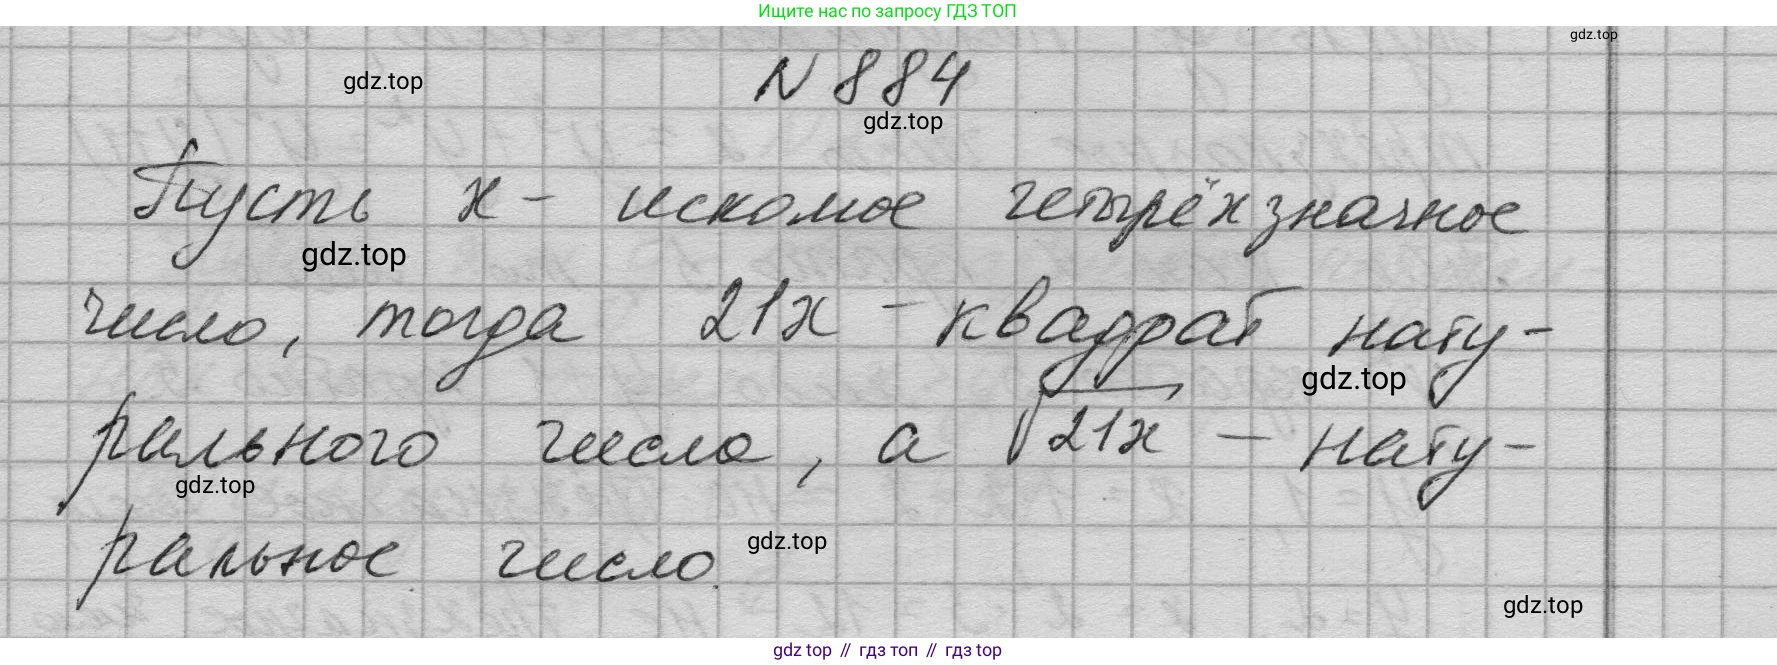 Ищите нас по запросу ГДЗ ТОП
gdz.top
N 884
gdz.top
gdz.top
Пусть x - искомое четырёхзначное
gdz.top
число, тогда 21x - квадрат нату-
gdz.top
рального числа, а √21x - нату-
gdz.top
ральное число.
gdz.top
gdz.top
gdz top // гдз топ // гдз top